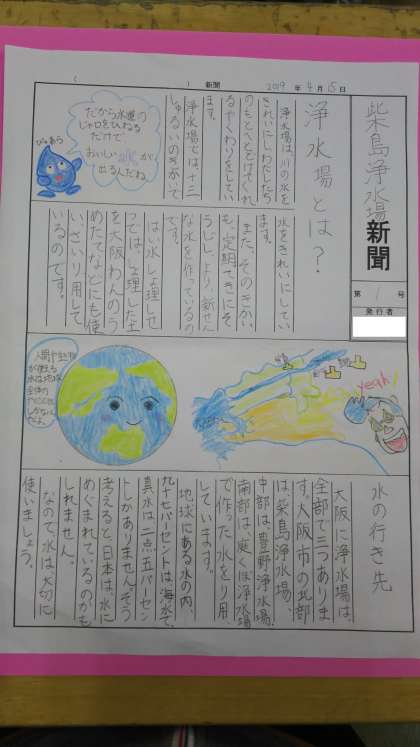 （　　　）新聞　2019年4月15日
柴島浄水場新聞
第1号
発行者
浄水場とは？
浄水場は、川の水を
きれいにしわたしたち
のもとへとどけてくれ
るやくわりをしてい
ます。
浄水場では、十三
しゅるいのきかいで
水をきれいにしてい
ます。
また、そのきかい
も、定期てきにそ
うじし、より、新せん
な水を作っているの
です。
はい水しょ理しせ
つでは、しょ理した土
を大阪わんのう
めたてなどにも使
い、さいり用して
いるのです。
だから水道の
じゃロをひねる
だけで
おいしい水が
出るんだね。
ぴゅあら
人間や生物
が使える
水は地球
全体の
しかない
んだよ。
yeah!
水の行き先
大阪に浄水場は、
全部で三つありま
す。大阪市の北部
は、柴島浄水場、
中部は、豊野浄水場、
南部は、庭くぼ浄水場
で作った水をり用
しています。
地球にある水の内、
九十七パーセントは、海水で、
真水は二点五パーセン
トしかありません。そう
考えると日本は、水に
めぐまれているのかも
しれません。
なので水は大切に
使いましょう。